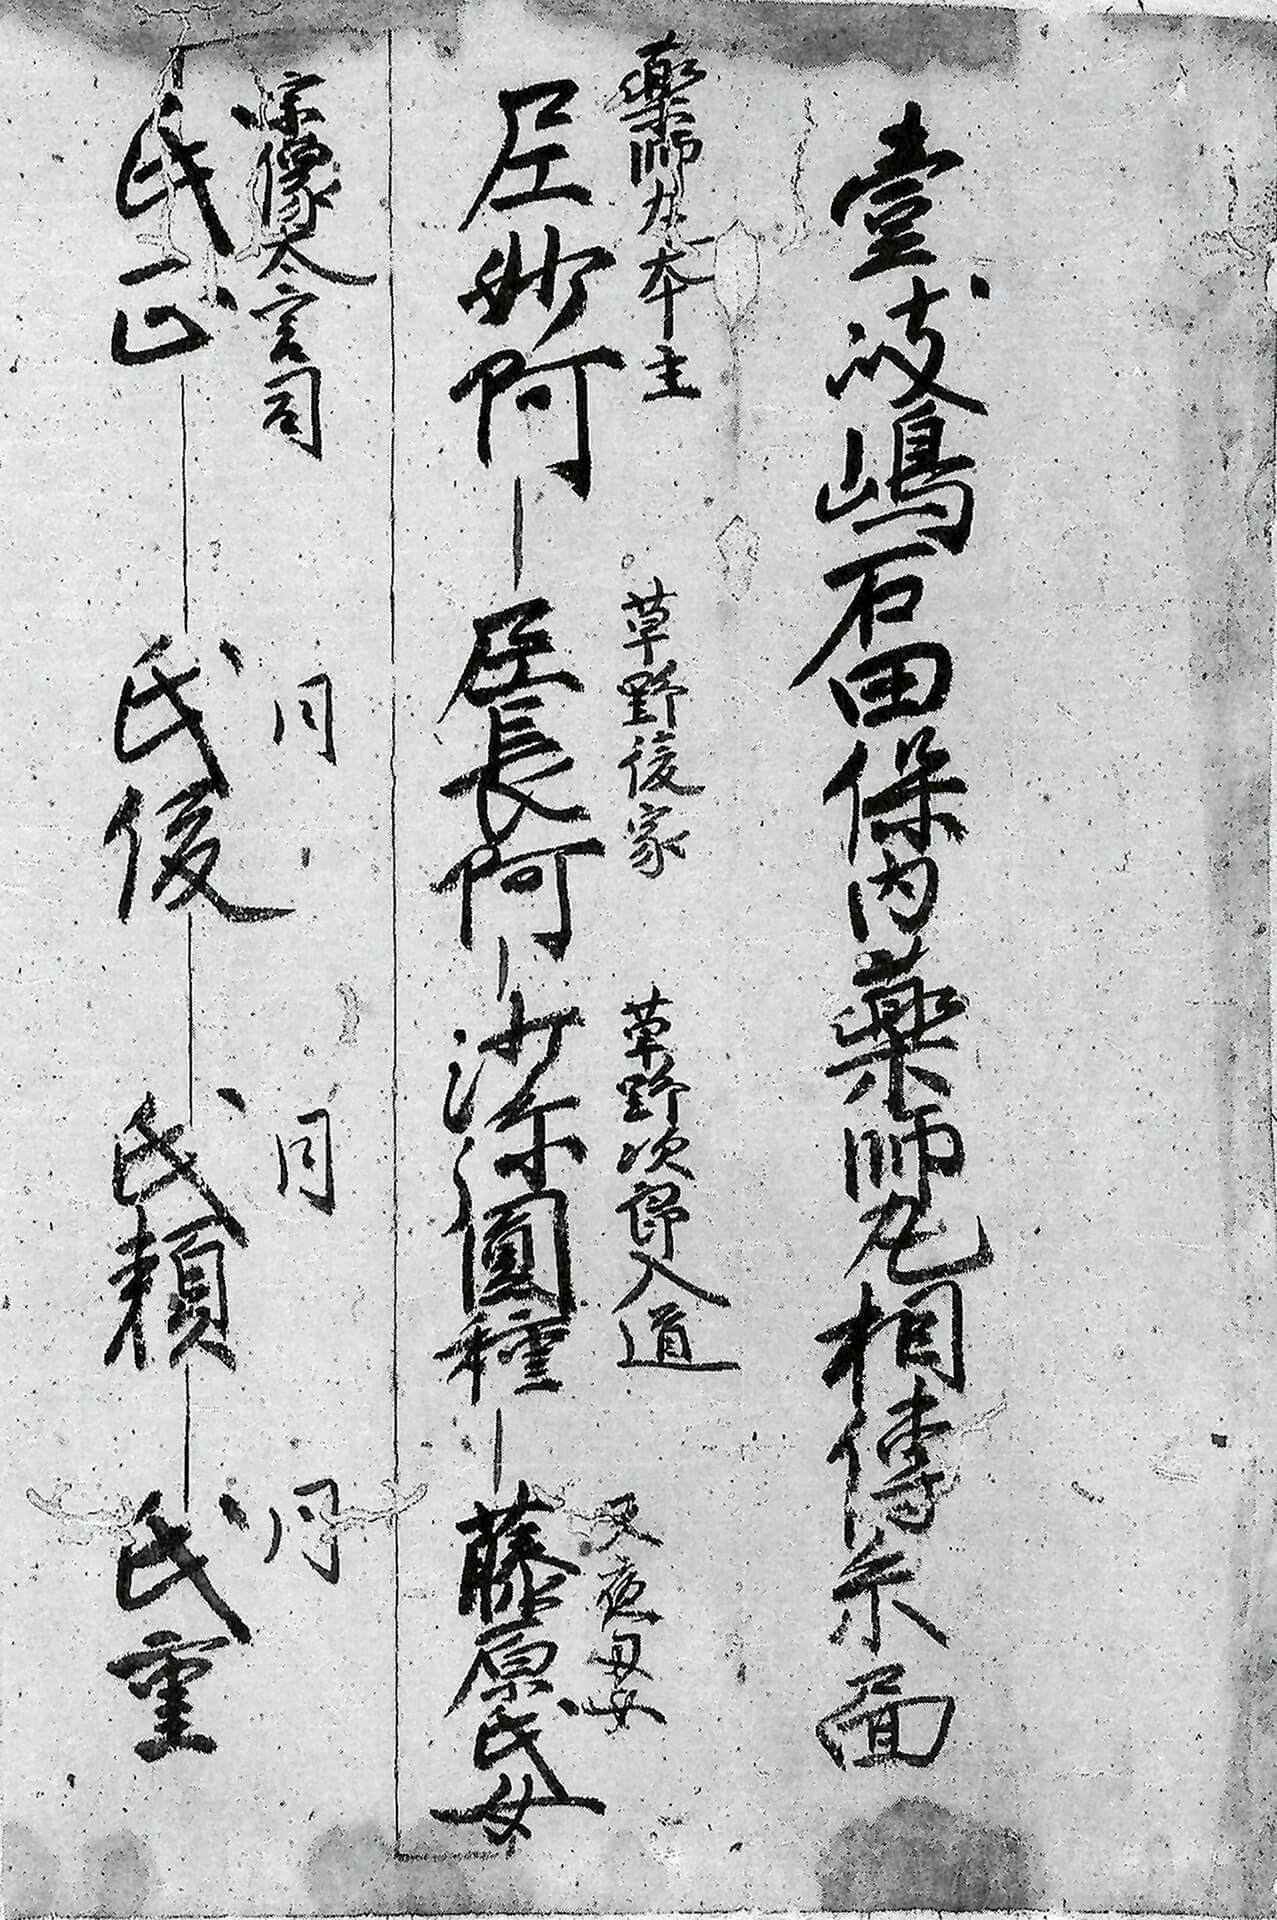 壹岐嶋石田保内藥師丸相傳系啚
藥師丸本主
尼妙阿
草野後家
尼長阿
草野次郎入道
沙弥圓種
藤原氏女
宗像大宮司
氏正
同
氏俊
同
氏頼
同
氏重